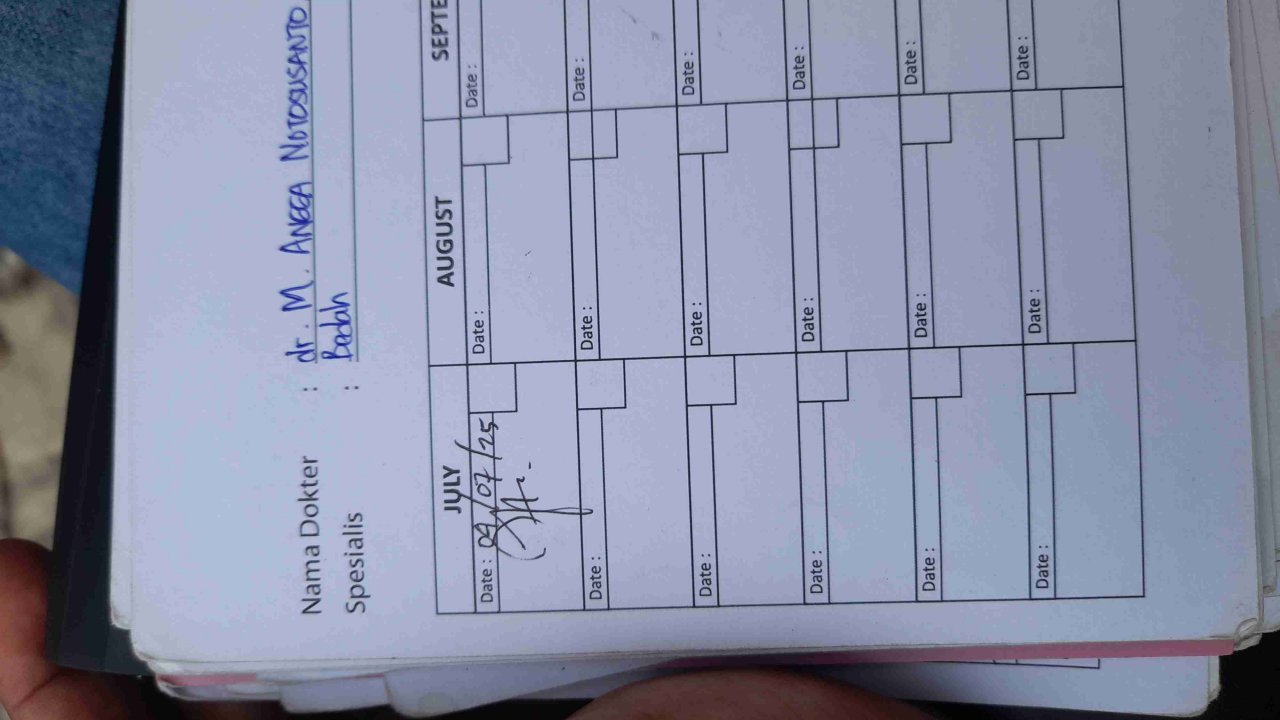 Nama Dokter : dr. M. ANGGA NOTOSUSANTO
Spesialis : Bedah
JULY AUGUST SEPTE
Date : 09/07/25 Date : Date :
Date : Date : Date :
Date : Date : Date :
Date : Date : Date :
Date : Date : Date :
Date : Date : Date :